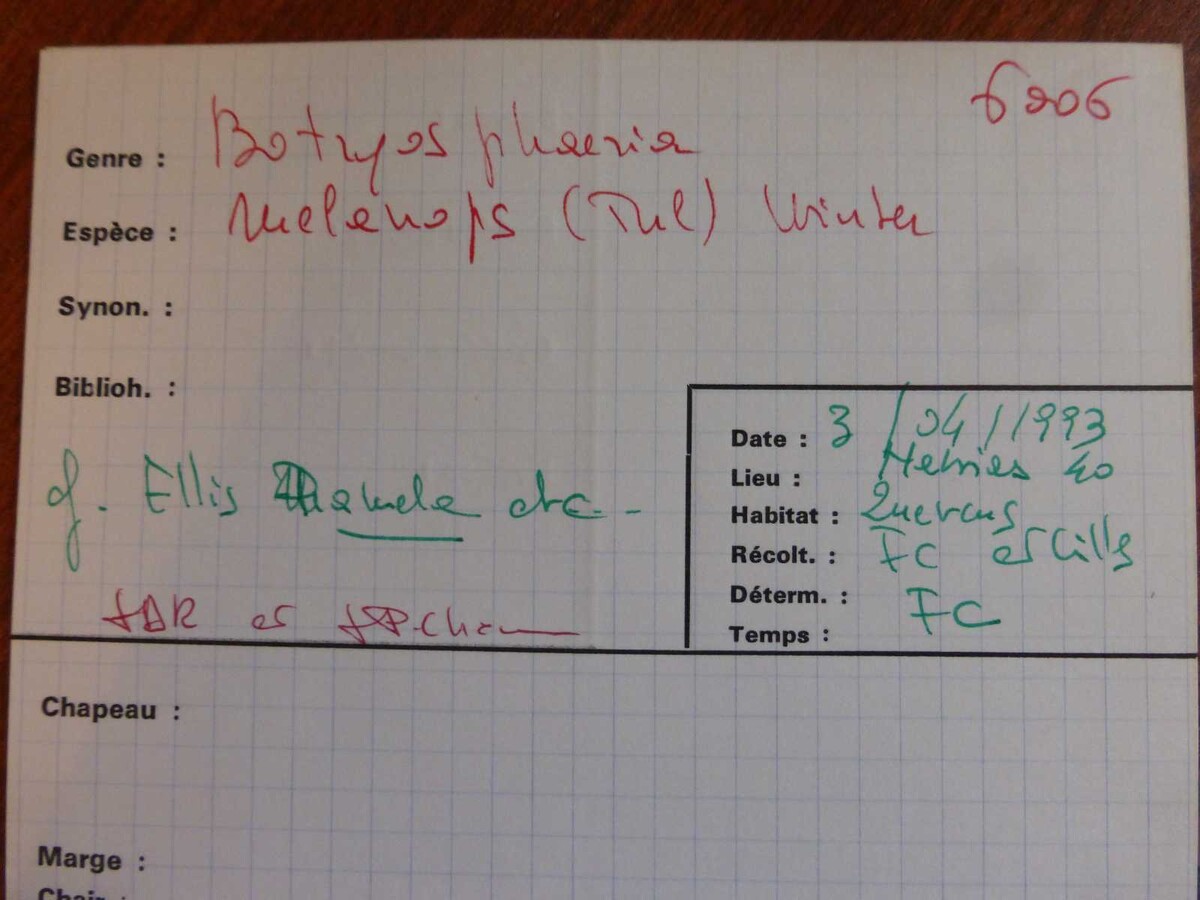 6206
Genre : Botryosphaeria
Espèce : Melanops (Tul) Winter
Synon. :
Biblioh. :
cf. Ellis etc -
Date : 3 /04/1993
Lieu : 40
Habitat : Quercus
Récolt. : FC et Gilly
Déterm. : FC
Temps :
Chapeau :
Marge :
Chair :